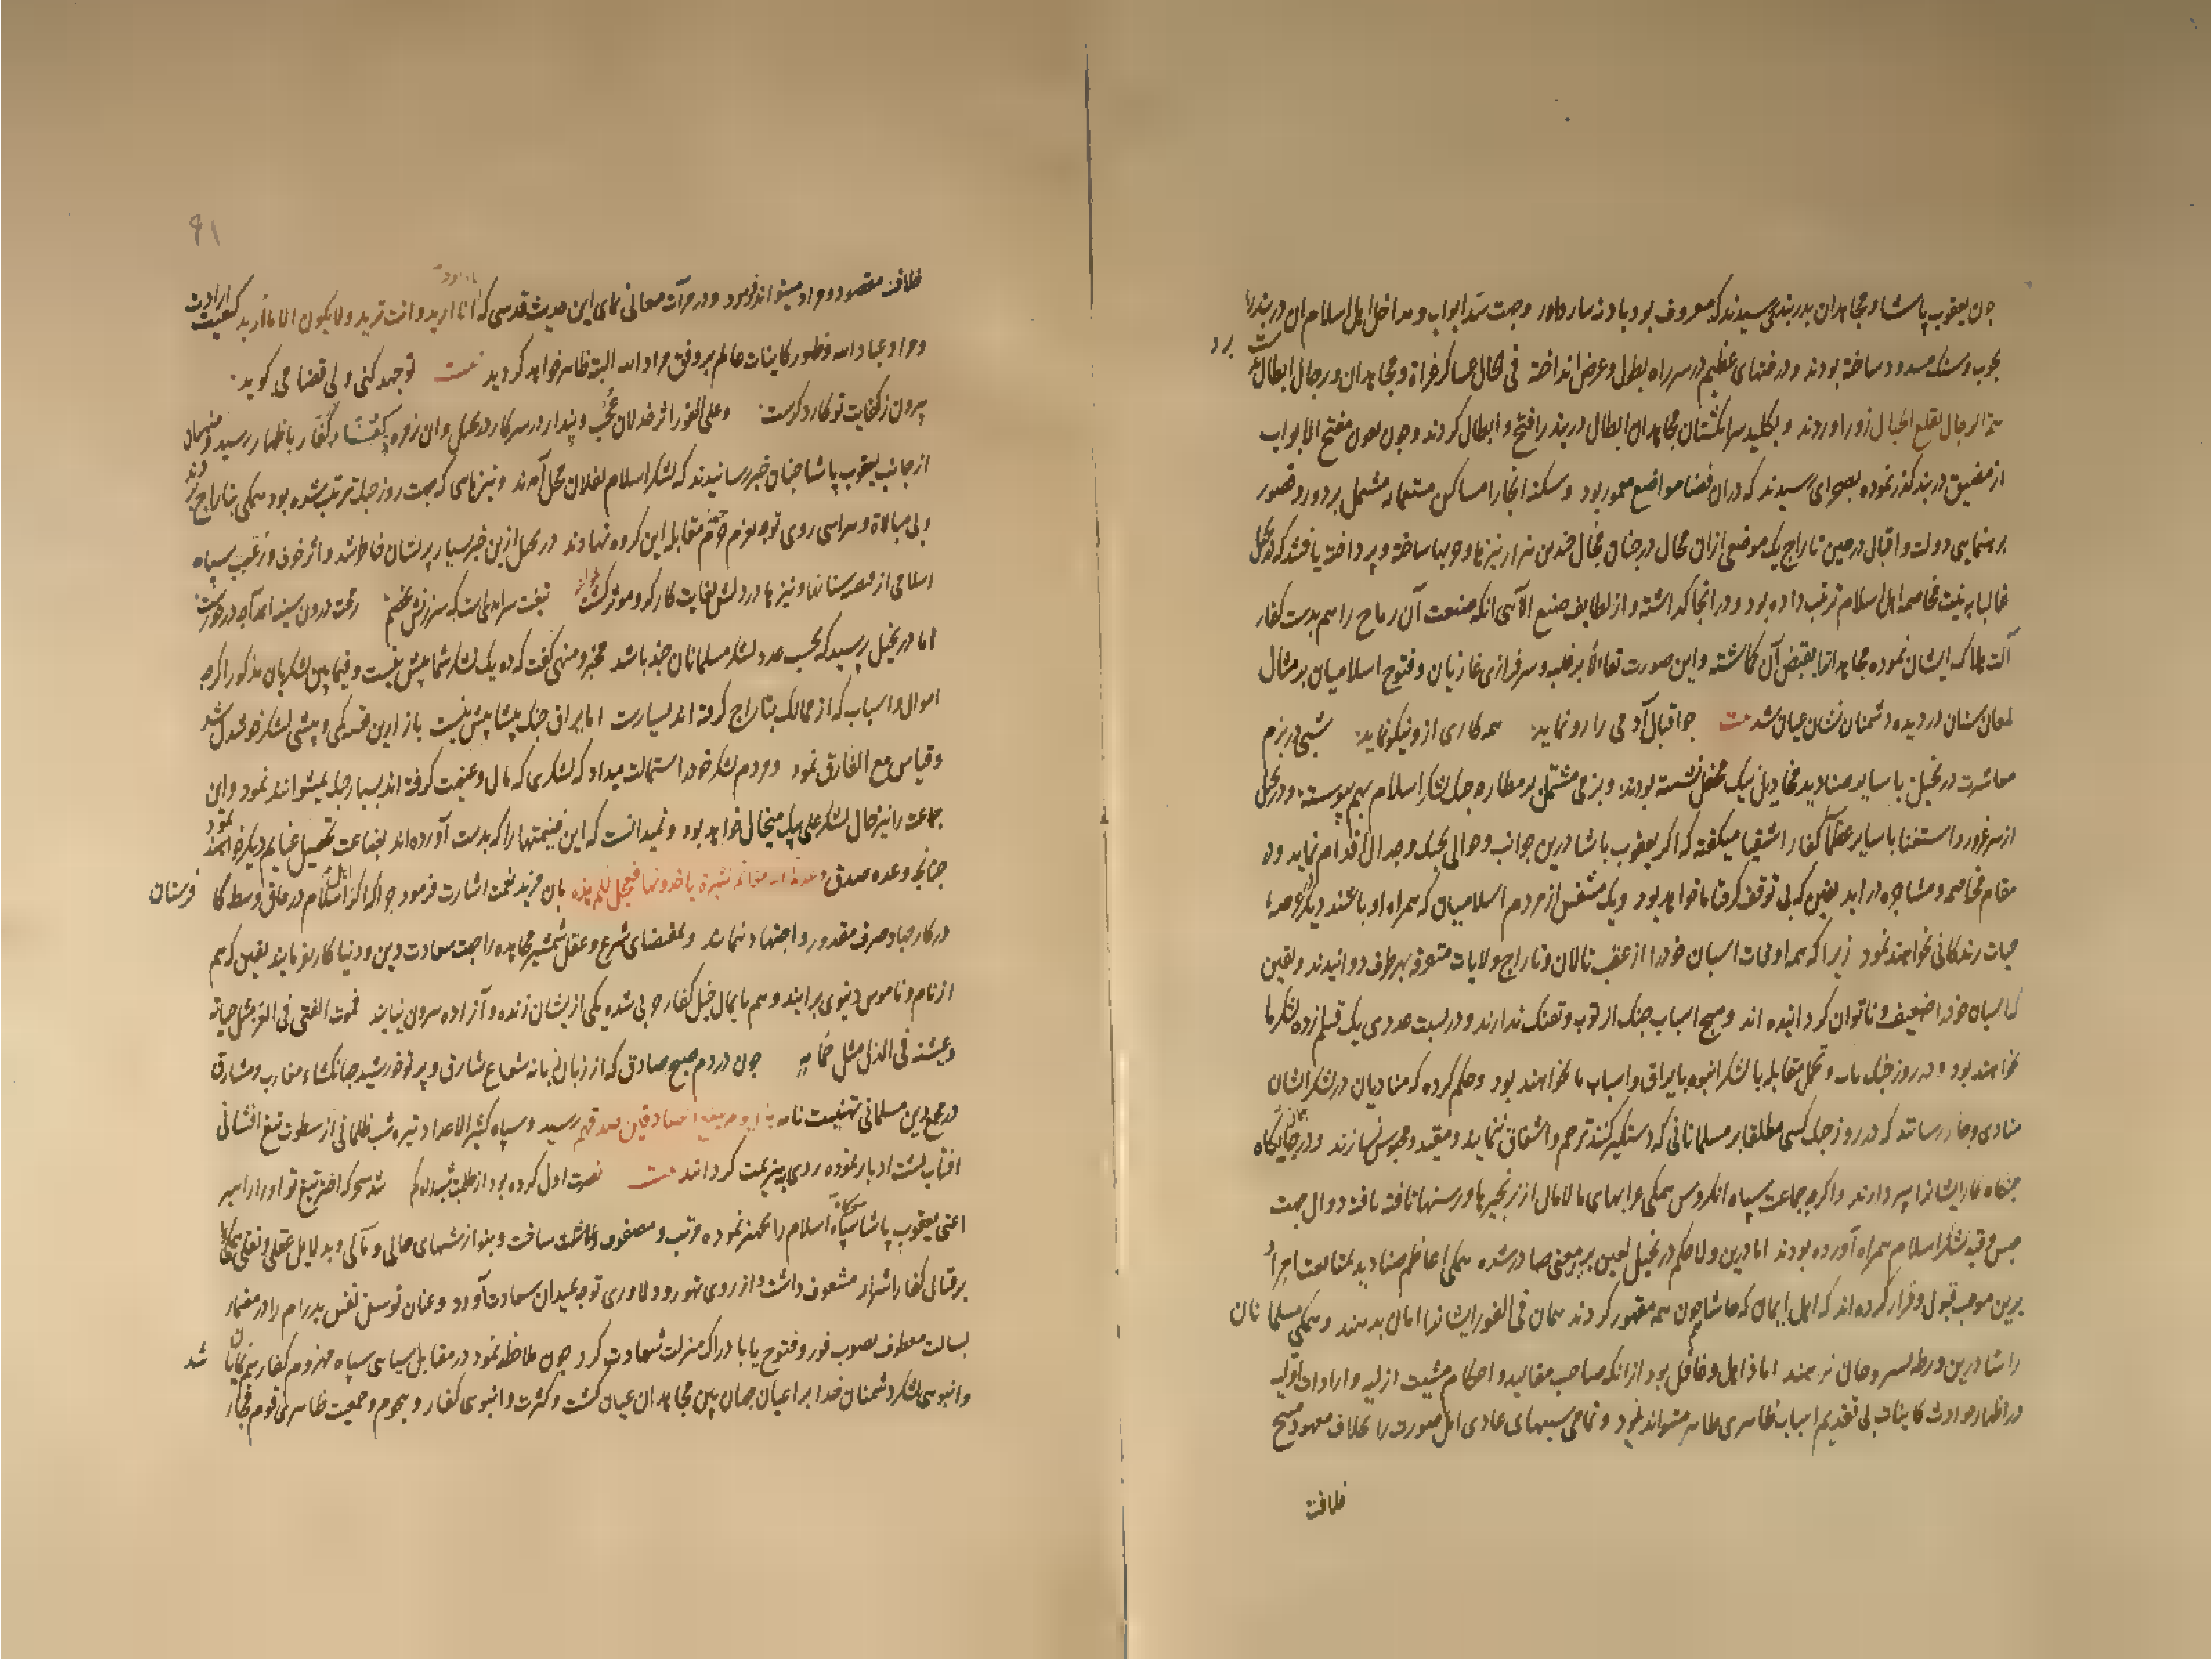 چون یعقوب پاشا و مجاهدان بدربندی رسیدند که معروف بود بادنه سار داور وجهت سد ابواب و مداخل اهل اسلام ان دربند را
بچوب وسنک مسدود ساخته بودند و درختهای عظیم در سر راه بطول وعرض انداخته فی الحال عساکر غزاة و مجاهدان و رجال ابطال
همة الرجال تقلع الجبال زور اوردند و بکلید سر انکشتان مجاهدان ابطال دربند را فتح و ابطال کردند و چون بعون مفتح الابواب
از مضیق دربند کذر نموده بصحرای رسیدند که دران فضا مواضع معمور بود و سکنه انجا را مساکن مشتمل بر دور و قصور
برهنمایی دولت و اقبال در حین تاراج یک موضعی ازان محال در چنان مجال چندین هزار نیزها و چوبها ساخته و پرداخته یافتند که
غالبا بر نیت مخاصمه اهل اسلام ترتیب داده بود و در انجا کذاشته و از لطایف صنع الآهی انکه صنعت آن رماح را هم بدست کفار
آلت هلاک ایشان نموده مجاهدانرا بقبض آن کماشته و این صورت تفأل بر غلبه و سرفرازی غازیان و فتوح اسلامیان بر مثال
لمعان سنان در دیده دشمنان نشان عیان شد بیت چو اقبال آدمی را رو نماید همه کاری ازو نیکو نماید شبی در بزم
معاشرت درنجیل با سایر صنادید مخاذیل بیک محفل نشسته بودند و بزمی مشتمل بر مطارحه جنک لشکر اسلام بهم پیوسته و درنجیل
از سر غرور و استغنا با سایر عظمآ کفار اشقیا میکفته که اکر یعقوب پاشا درین جوانب و حوالی بجنک و جدال اقدام نماید و در
مقام مخاصمه و مشاجره دراید یقین که بی توقف کرفتار ما خواهد بود و یک متنفس از مردم اسلامیان که همراه او باشند دیکر
حیات زندکانی نخواهند نمود زیرا که همه اوقات اسبان خود را از عقب تالان و تاراج ولایات متفرقه بهر طرف دوانیدند و یقین
که اسبان خود را ضعیف و ناتوان کردانیده اند و هیچ اسباب جنک از توپ و تفنک ندارند و در نسبت عددی یک قسم از ده لشکر ما
نخواهند بود و در روز جنک تاب و تحمل مقابله با لشکر انبوه با یراق و اسباب ما نخواهند بود و حکم کرده که منادیان در لشکر ایشان
منادی و جار رسانند که در روز جنک کسی مطلقا بر مسلمانانی که دستکیر کنند ترحم و اشفاق ننماید و مقید و محبوس نسازند و در
جنکاه سپر دارند و اکرچه جماعت سپاه انکروس همکی عرابهای مالامال از زنجیرها و رسنها تافته بافته دوال جهت
حبس و قید لشکر اسلام همراه آورده بودند اما درین ولا حکم درنجیل لعین برین معنی صادر شده همکی اعاظم صنادید
برین موجب قبول و قرار کرده اند که اهل ایمان که حاشا چون همه مقهور کردند همان فی الفور ایشانرا امان بدهند و همکی مسلمانان
را شا درین ورطه بسر و جان نرهند اما ذاهل و غافل بود ازانکه صاحب مقالید و احکام مشیت ازلیه و ارادات اولیه
در اظهار حوادث کاینات بی تقدیم اسباب ظاهری ظاهر میتواند نمود و تمامی سببهای عادی اهل صورت را بخلاف معهود
خلافت
۹۱
خلاف مقصود و مراد میتواند فرمود و در مرآت معانی نمای این حدیث قدسی که انا ارید وانت ترید ولا یکون الا ما ارید کیفیت ارادت
و مراد عباد الله و ظهور کاینات عالم بر وفق مراد الله البته ظاهر خواهد کردید بیت تو جهد کنی ولی قضا می کوید
بیرون ز کفایت تو کار دکرست وعلی الفور اثر خذلان عجب و پندار در سر کار درنجیل وان زمره کفار باظهار رسید و منهیان
از جانب یعقوب پاشا چنان خبر رسانیدند که لشکر اسلام بفلان محل آمدند و نیزهایی که جهت روز جنک ترتیب شده بود همکی بتاراج بردند
و بی مبالاة و هراسی روی توجه بعزم جزم مقابله این کروه نهادند درنجیل ازین خبر بسیار پریشان خاطر شد و اثر خوف و رعب سپاه
اسلامی از قصه سنانها و نیزها در دلش بغایت کارکر و موثر کشت
اما درنجیل پرسید که بحسب عدد لشکر مسلمانان چند باشد مخبر و منهی کفت که ده یک لشکر شما بیش نیست و فیما بین لشکریان مذکور اکرچه
اموال و اسباب که از ممالک بتاراج کرفته اند بسیارست اما یراق جنک بیشابیش نیست باز ازین قصه کمی و بیشی لشکر خوشدل شد
و قیاس مع الفارق نمود و مردم لشکر خود را استمالت میداد که لشکری که مال و غنیمت کرفته اند بسیار جنک نمیتوانند نمود و این
جماعت را نیز حال لشکر علی بیک میخال خواهد بود و نمیدانست که این غنیمتها را که بدست آورده اند بضاعت تحصیل غنایم دیکر خواهند نمود
چنانچه وعده صدق وعدکم الله مغانم کثیرة تاخذونها فعجل لکم هذه بان مزید نعمت اشارت فرمود چرا که اکر اهل اسلام در چنان وسط کافرستان
در کار جهاد صرف مقدور و اجتهاد ننمایند و بمقتضای شرع و عقل شمشیر مجاهده را جهت سعادت دین و دنیا کار نفرمایند یقین که هم
از نام و ناموس دنیوی برایند و هم پایمال خیل کفار حربی شده یکی ازیشان زنده و آزاده بیرون نیایند فموت الفتی فی العز مثل حیاته
وعیشته فی الذل مثل حمامه چون در دم صبح صادق که از زبان زبانه شعاع شارق و پرتو خورشید جهانکشاء مغارب و مشارق
در مجمع دین مسلمانی تهنیت نامه هذا یوم ینفع الصادقین صدقهم رسید و سپاه کثیر الاعداد تیره شب ظلمانی از سطوت تیغ افشانی
افتاب پشت ادبار نموده روی بهزیمت کردانید بیت
اعنی یعقوب پاشا سپاه اسلام را مجهز نموده مرتب و مصفوف ساخت و بنوازشهای حالی و مآلی و بدلایل عقلی و نقلی همکی را
بر قتال کفار اشرار مشعوف داشت و از روی تهور و دلاوری توجه بمیدان سعادت آورد و عنان توسن نفس بدرام را در مضمار
بسالت معطوف بصوب فوز و فتوح یا با دراک منزلت شهادت کرد و چون ملاحظه نمود در مقابل سیاهی سپاه مهزوم کفار نمایان شد
و انبوهی لشکر دشمنان خدا بر اعیان جهان بین مجاهدان عیان کشت و کثرت و انبوهی کفار و هجوم و جمعیت ظاهری قوم فجار